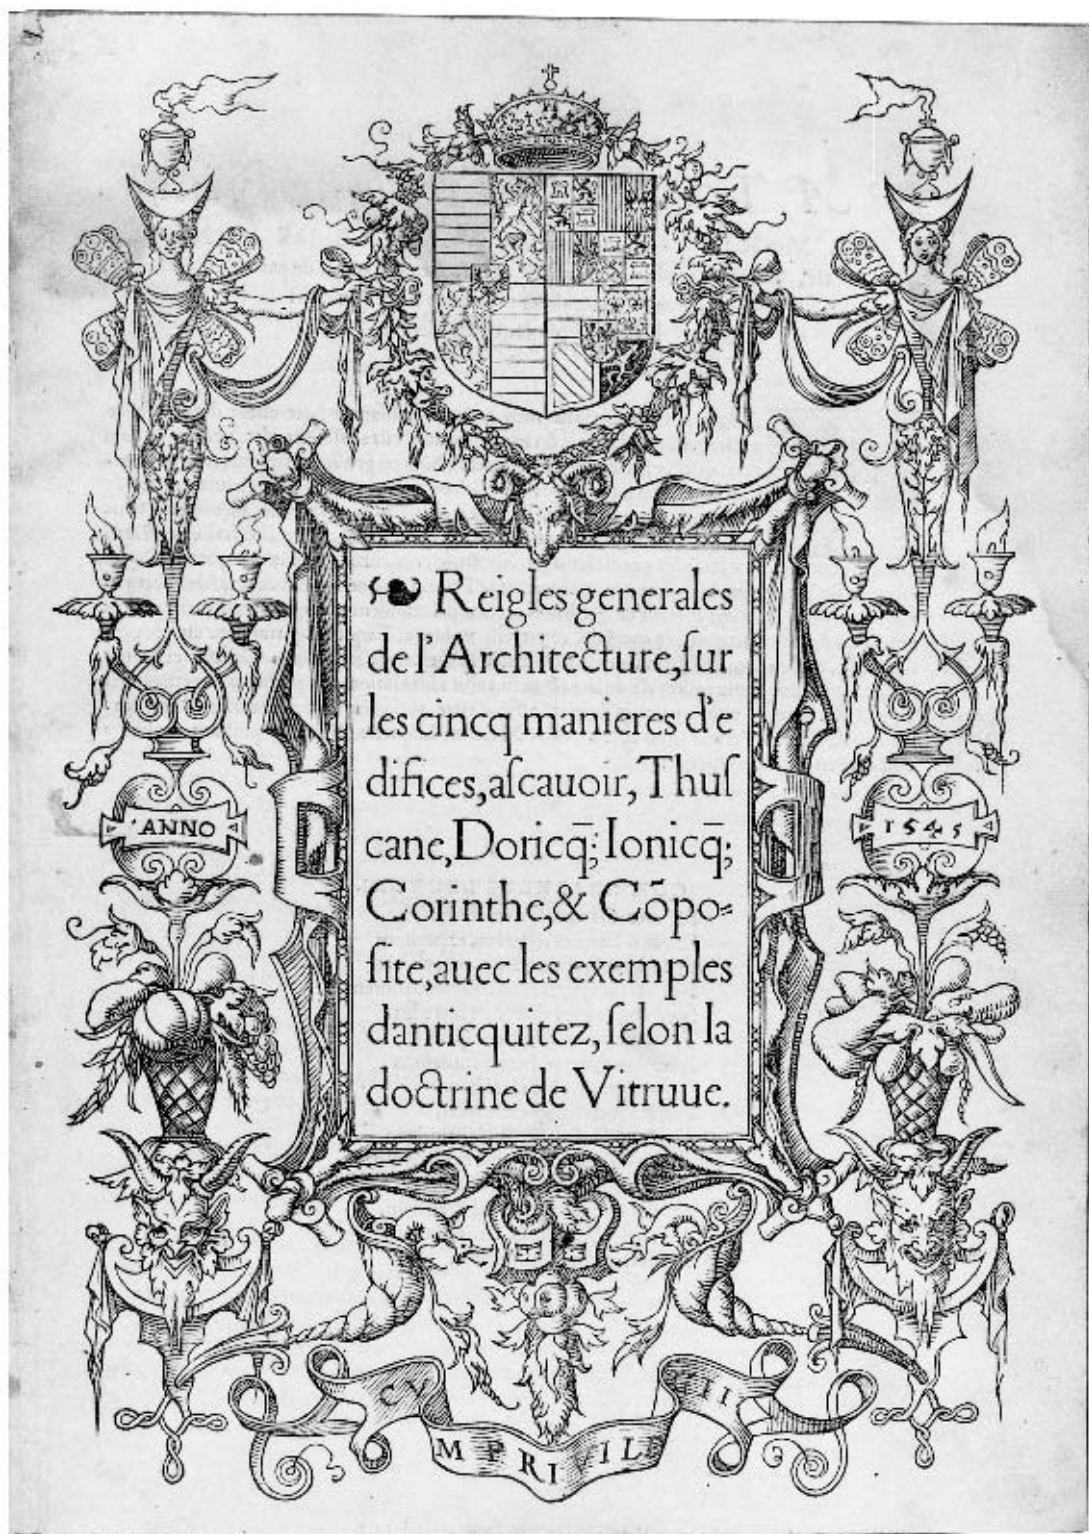 ❧ Reigles generales
de l'Architecture, ſur
les cincq manieres d'e
difices, aſcauoir, Thuſ
cane, Doricq̄; Ionicq̄;
Corinthe, & Cōpo⸗
ſite, auec les exemples
danticquitez, ſelon la
doctrine de Vitruue.
ANNO
1545
CV
M PRIVIL